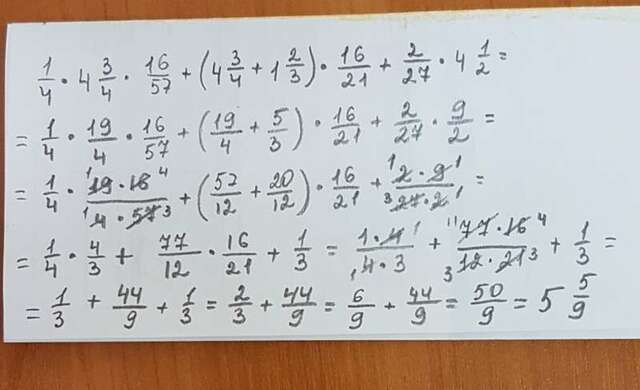 1/4 · 4 3/4 · 16/57 + (4 3/4 + 1 2/3) · 16/21 + 2/27 · 4 1/2 =
= 1/4 · 19/4 · 16/57 + (19/4 + 5/3) · 16/21 + 2/27 · 9/2 =
= 1/4 · ¹19 · 16⁴/¹4 · 57³ + (57/12 + 20/12) · 16/21 + ¹2 · 9¹/³27 · 2¹ =
= 1/4 · 4/3 + 77/12 · 16/21 + 1/3 = 1 · 4¹/₁4 · 3 + ¹¹77 · 16⁴/₃12 · 21³ + 1/3 =
= 1/3 + 44/9 + 1/3 = 2/3 + 44/9 = 6/9 + 44/9 = 50/9 = 5 5/9